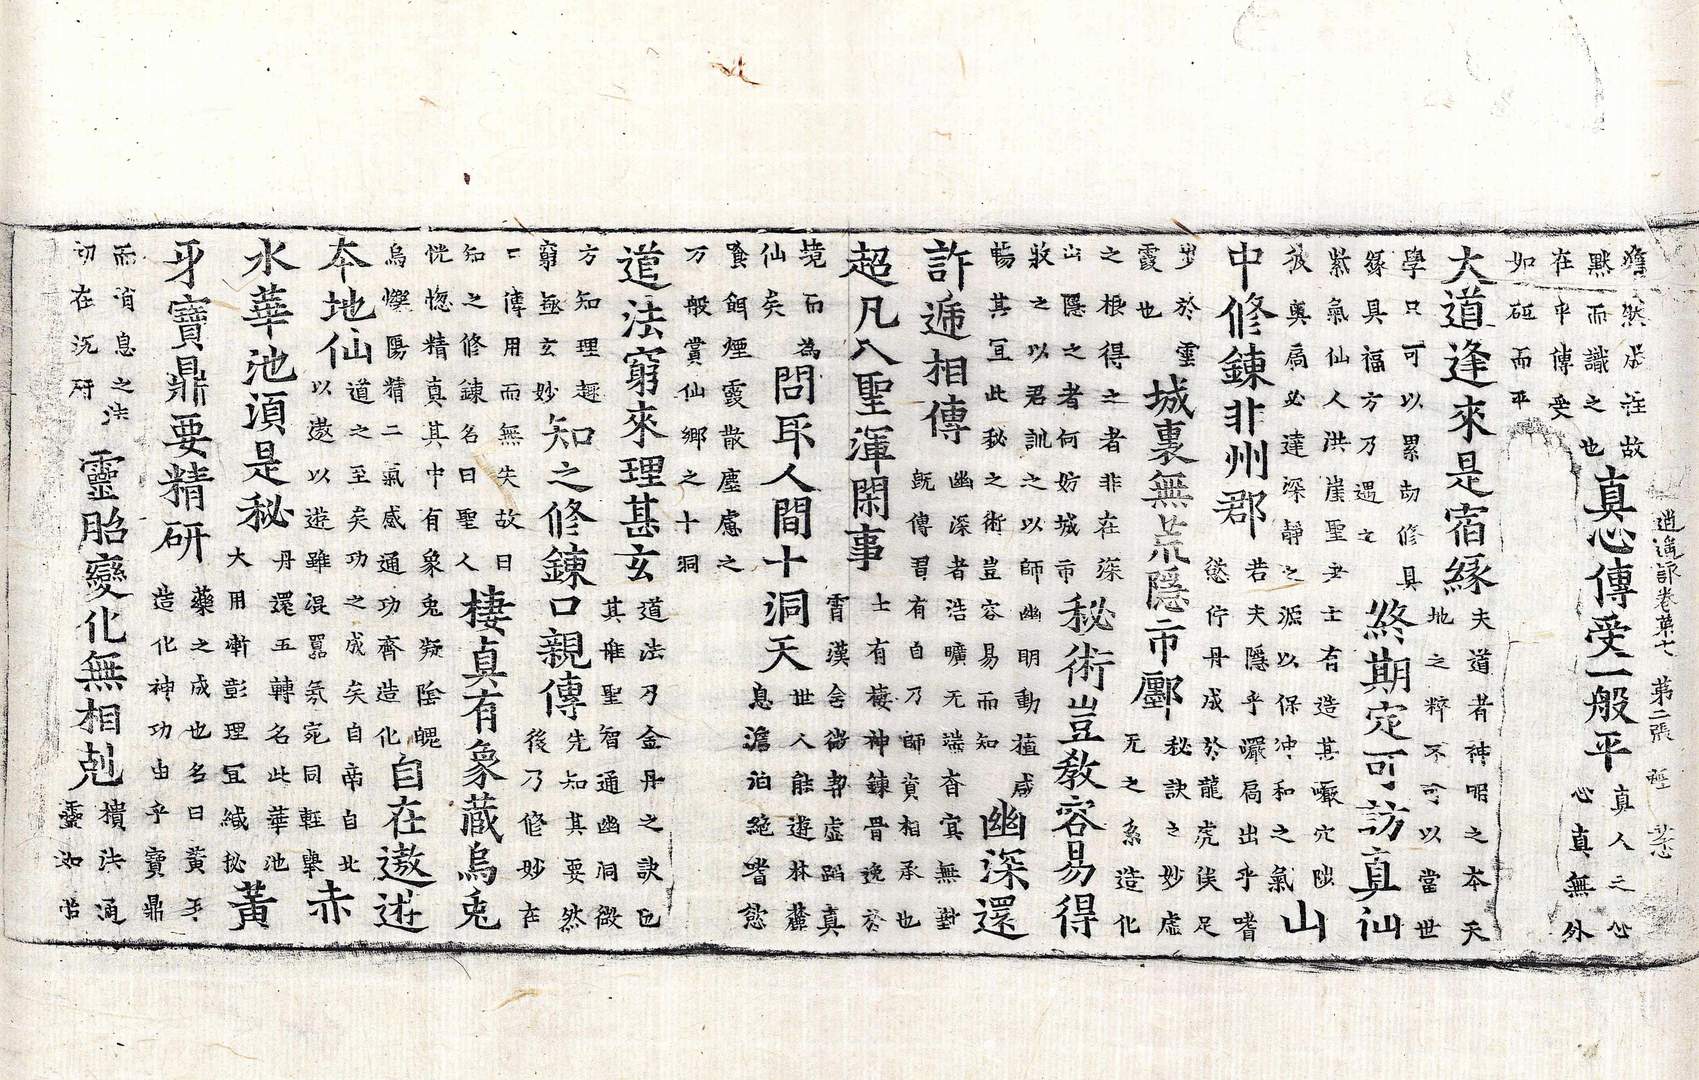 雖然虛注故
默而識之也
真心傳受一般平
真人之心
心真無外
在中傳受
如砥而平
逍遙詠卷第七 第二張
大道逢來是宿緣
夫道者神明之本天
地之粹不可以當世
學只可以累劫修具
籙具福方乃遇之
終期定可訪真仙
紫氣仙人洪崖聖士育造其巖穴
奧扃必達深靜之源以保冲和之氣
山
中修鍊非州郡
若夫隱乎巖扃出乎嗜
慾佇丹成於龍虎俟足
步於雲
霞也
城裏無荒隱市鄽
秘訣之妙虛
无之系造化
之根得之者非在深
山隱之者何妨城市
秘術豈教容易得
教之以君訓之以師幽明動植咸
暢其宜此秘之術豈容易而知
幽深還
許遞相傳
幽深者浩曠无端杳冥無對
既傳習有自乃師資相承也
超凡入聖渾閑事
士有棲神鍊骨逸於
霄漢含彩契虛蹈真
境而為
仙矣
問耶人間十洞天
世人能遊林麓
息澹泊絕嗜慾
飡餌煙霞散塵慮之
万般賞仙鄉之十洞
道法窮來理甚玄
道法乃金丹之訣也
其唯聖智通幽洞微
方知理趣
窮極玄妙
知之修鍊口親傳
先知其要然
後乃修妙在
口傳用而無失故曰
知之修鍊名曰聖人
棲真有象藏烏兔
恍惚精真其中有象兔凝陰魄
烏爍陽精二氣感通功齊造化
自在遨遊
本地仙
道之至矣功之成矣自南自北
以遨以遊雖混囂氛宛同輕舉
赤
水華池須是秘
丹還五轉名此華池
大用斯彰理宜緘秘
黃
牙寶鼎要精研
藥之成也名曰黃牙
造化神功由乎寶鼎
而消息之法
切在沉研
靈胎變化無相剋
積法通
靈如